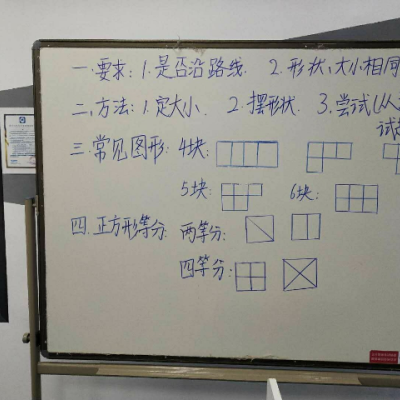 一.要求:1.是否沿路线. 2.形状、大小相同
二.方法:1.定大小. 2.摆形状. 3.尝试(从
试
三.常见图形:4块:
5块: 6块:
四.正方形等分:两等分:
四等分: